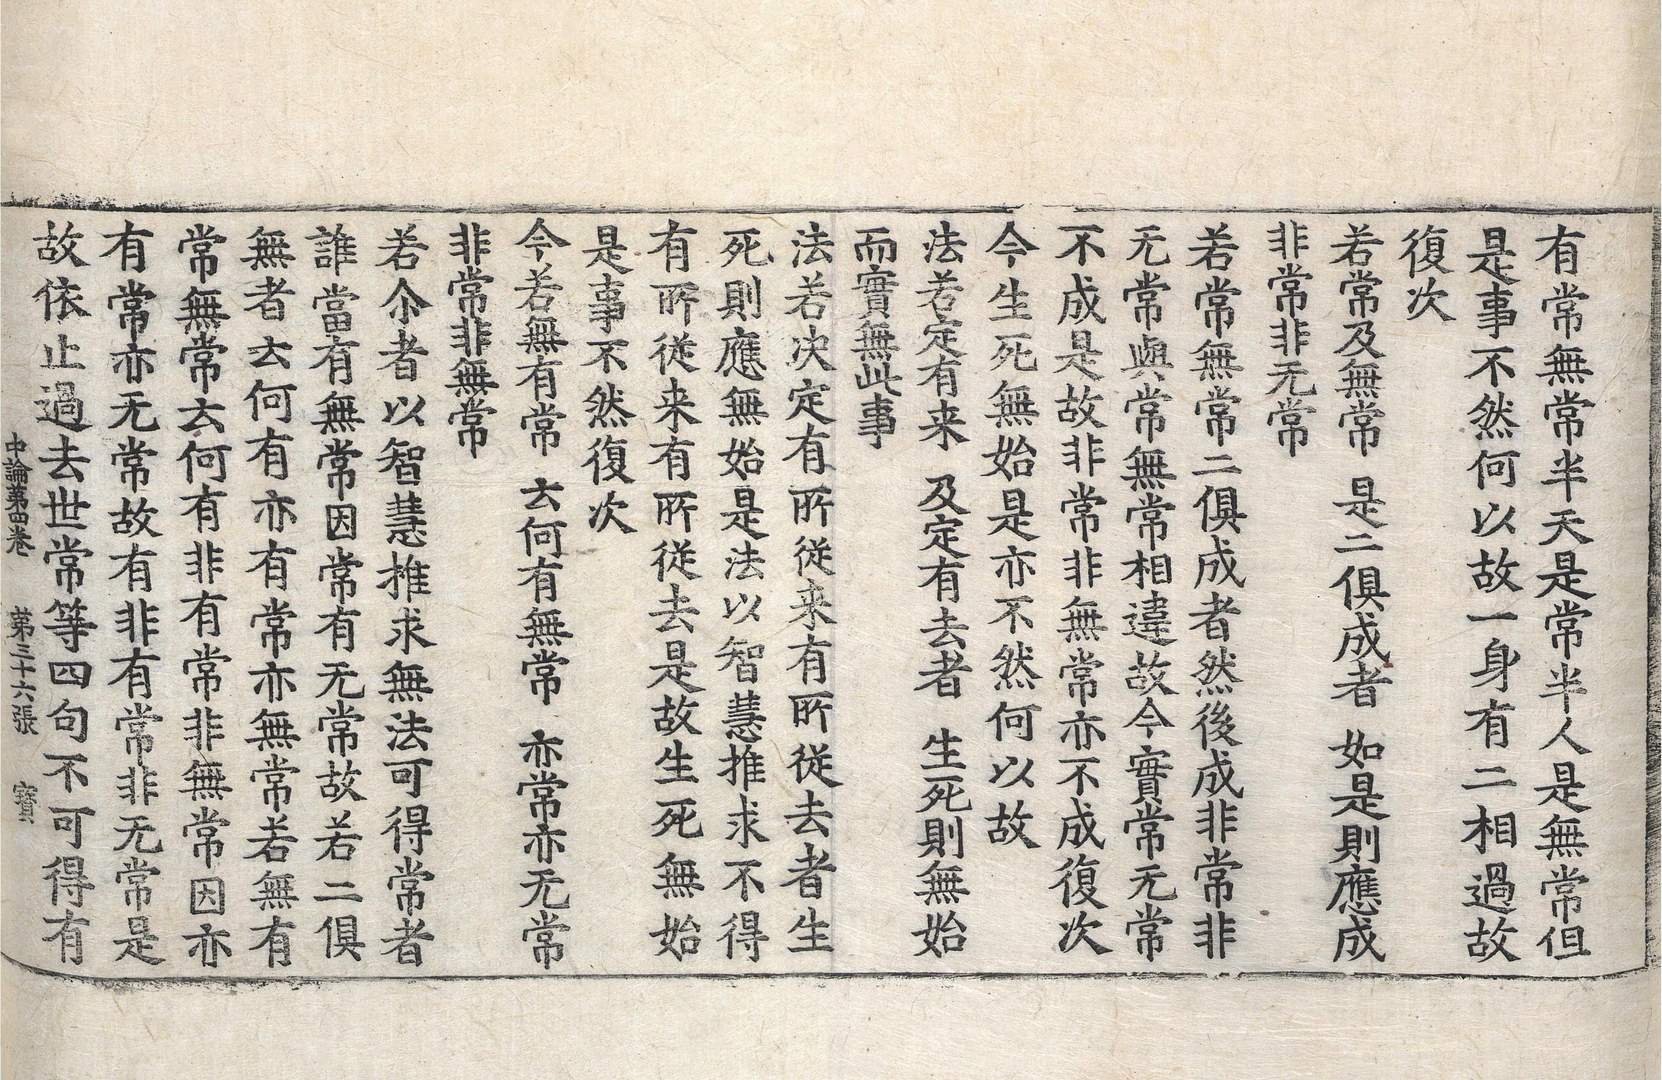 有常無常半天是常半人是無常但
是事不然何以故一身有二相過故
復次
若常及無常 是二俱成者 如是則應成
非常非无常
若常無常二俱成者然後成非常非
无常與常無常相違故今實常无常
不成是故非常非無常亦不成復次
今生死無始是亦不然何以故
法若定有来 及定有去者 生死則無始
而實無此事
法若决定有所從来有所從去者生
死則應無始是法以智慧推求不得
有所從来有所從去是故生死無始
是事不然復次
今若無有常 云何有無常 亦常亦无常
非常非無常
若尒者以智慧推求無法可得常者
誰當有無常因常有无常故若二俱
無者云何有亦有常亦無常若無有
常無常云何有非有常非無常因亦
有常亦无常故有非有常非无常是
故依止過去世常等四句不可得有
中論第四卷 第三十六張 寶